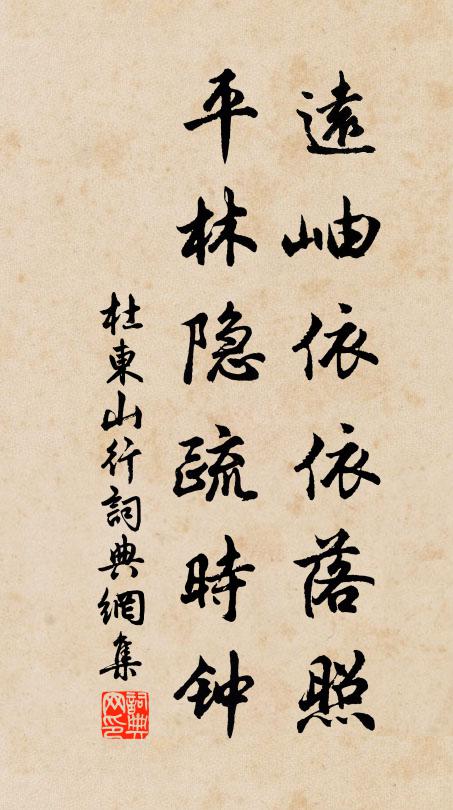 遠岫依依落照
平林隐疏時钟
杜東山行詞典網集
詞典
网印